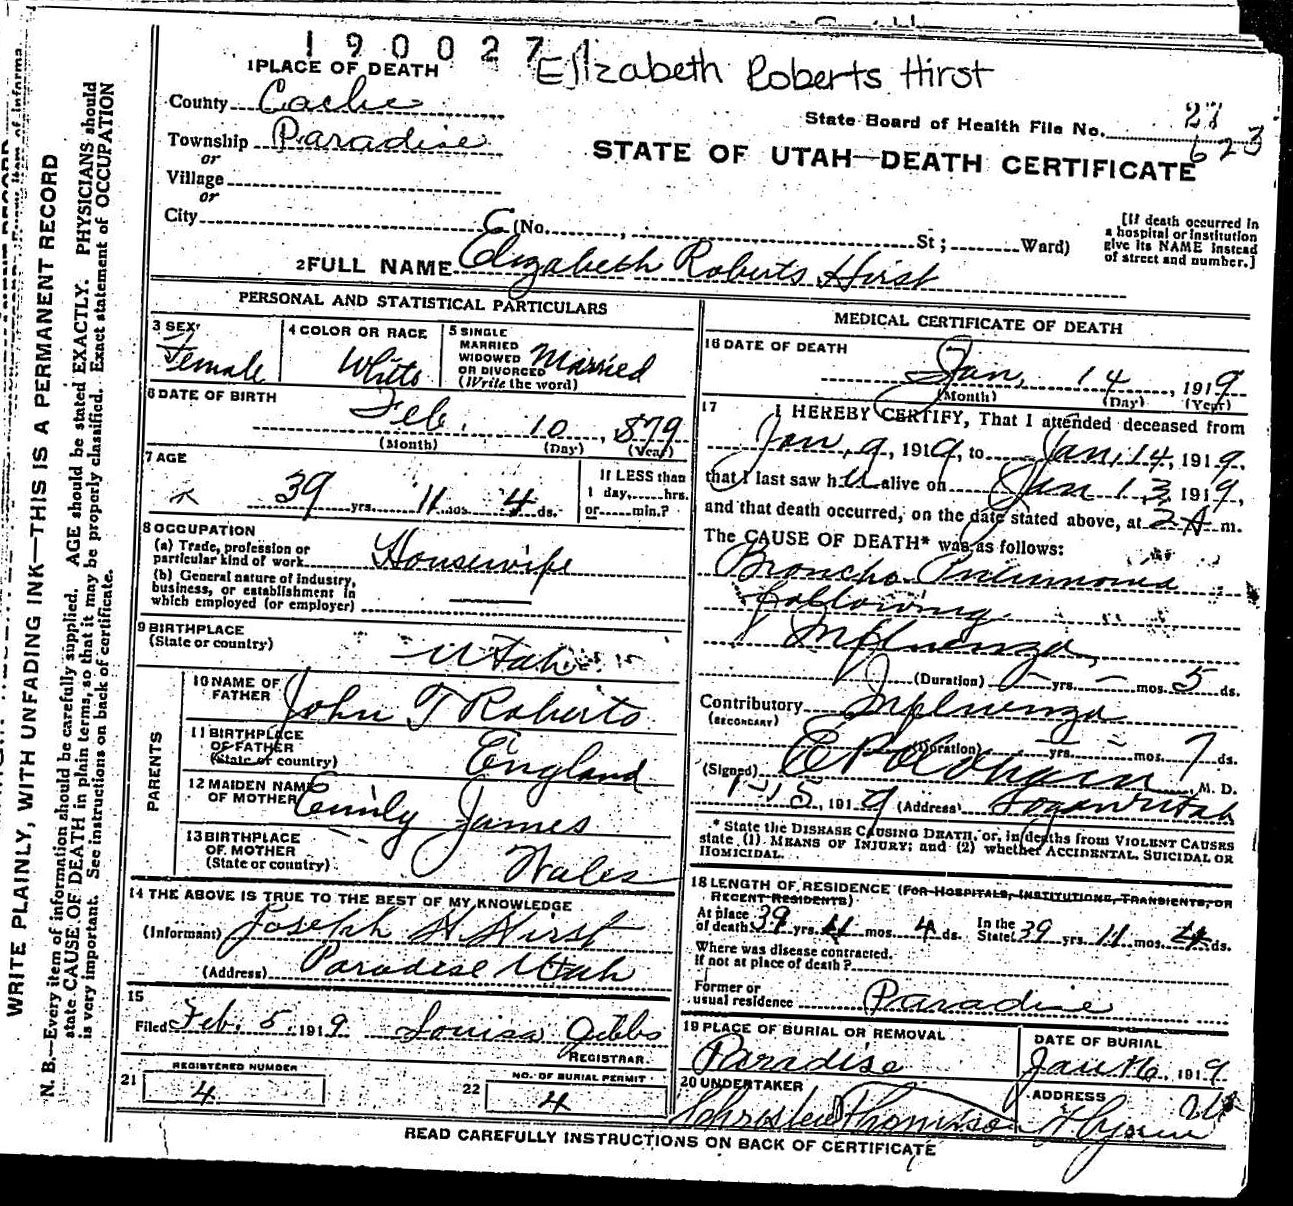 190027 Elizabeth Roberts Hirst
1 PLACE OF DEATH
County Cache
State Board of Health File No. 27
623
Township Paradise
or
STATE OF UTAH—DEATH CERTIFICATE
Village
or
City (No. , St ; Ward)
[If death occurred in
a hospital or institution
give its NAME instead
of street and number.]
2 FULL NAME Elizabeth Roberts Hirst
PERSONAL AND STATISTICAL PARTICULARS
3 SEX Female
4 COLOR OR RACE White
5 SINGLE
MARRIED
WIDOWED
OR DIVORCED
(Write the word)
Married
6 DATE OF BIRTH
Feb. 10, 879
(Month) (Day) (Year)
7 AGE
39 yrs. 11 mos. 4 ds.
If LESS than
1 day, hrs.
or min.?
8 OCCUPATION
(a) Trade, profession or
particular kind of work Housewife
(b) General nature of Industry,
business, or establishment in
which employed (or employer)
9 BIRTHPLACE
(State or country) Utah
PARENTS
10 NAME OF
FATHER John T Roberts
11 BIRTHPLACE
OF FATHER
(State or country) England
12 MAIDEN NAME
OF MOTHER Emily James
13 BIRTHPLACE
OF MOTHER
(State or country) Wales
14 THE ABOVE IS TRUE TO THE BEST OF MY KNOWLEDGE
(Informant) Joseph H Hirst
(Address) Paradise Utah
15
Filed Feb. 5, 1919 Louisa Gibbs
REGISTRAR.
21 REGISTERED NUMBER
4
22 NO. OF BURIAL PERMIT
4
MEDICAL CERTIFICATE OF DEATH
16 DATE OF DEATH
Jan. 14, 1919
(Month) (Day) (Year)
17 I HEREBY CERTIFY, That I attended deceased from
Jan. 9, 1919, to Jan. 14, 1919,
that I last saw her alive on Jan 13, 1919,
and that death occurred, on the date stated above, at 2 A m.
The CAUSE OF DEATH* was as follows:
Broncho Pneumonia
following
Influenza
(Duration) yrs. mos. 5 ds.
Contributory Influenza
(SECONDARY)
(Duration) yrs. mos. 7 ds.
(Signed) M. D.
1-15, 1919 (Address) Logan Utah
* State the DISEASE CAUSING DEATH, or, in deaths from VIOLENT CAUSES
state (1) MEANS OF INJURY; and (2) whether ACCIDENTAL, SUICIDAL OR
HOMICIDAL.
18 LENGTH OF RESIDENCE (FOR HOSPITALS, INSTITUTIONS, TRANSIENTS, OR
RECENT RESIDENTS)
At place
of death 39 yrs. 11 mos. 4 ds.
In the
State 39 yrs. 11 mos. 4 ds.
Where was disease contracted,
if not at place of death?
Former or
usual residence Paradise
19 PLACE OF BURIAL OR REMOVAL
Paradise
DATE OF BURIAL
Jan 16, 1919
20 UNDERTAKER
ADDRESS
Hyrum
READ CAREFULLY INSTRUCTIONS ON BACK OF CERTIFICATE
WRITE PLAINLY, WITH UNFADING INK—THIS IS A PERMANENT RECORD
N. B.—Every item of information should be carefully supplied. AGE should be stated EXACTLY. PHYSICIANS should
state CAUSE OF DEATH in plain terms, so that it may be properly classified. Exact statement of OCCUPATION
is very important. See instructions on back of certificate.